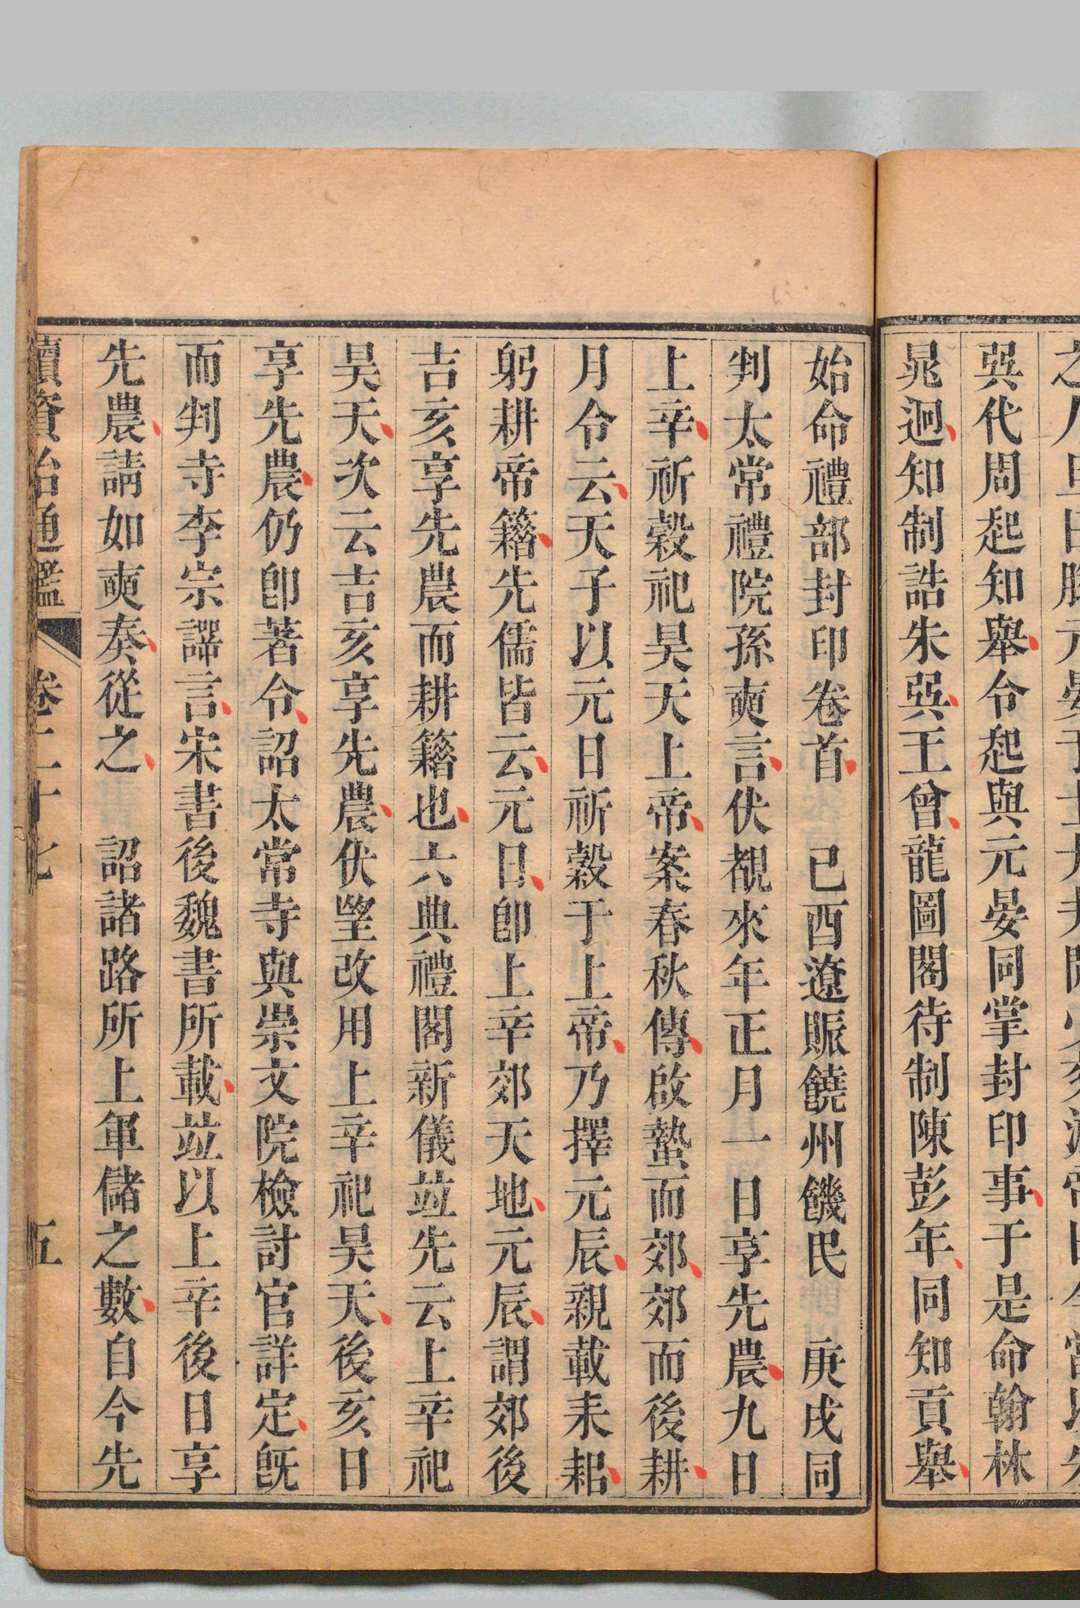 吳代周起知舉令起與元晏同掌封印事于是命翰林
晁迥知制誥朱㢲王曾龍圖閣待制陳彭年同知貢舉
始命禮部封印卷首　己酉遼賑饒州饑民　庚戌同
判太常禮院孫奭言伏覩來年正月一日享先農九日
上辛祈穀祀昊天上帝案春秋傳啟蟄而郊郊而後耕
月令云天子以元日祈穀于上帝乃擇元辰親載耒耜
躬耕帝籍先儒皆云元日卽上辛郊天地元辰謂郊後
吉亥享先農而耕籍也六典禮閣新儀竝先云上辛祀
昊天次云吉亥享先農伏望改用上辛祀昊天後亥日
享先農仍卽著令詔太常寺與崇文院檢討官詳定旣
而判寺李宗諤言宋書後魏書所載竝以上辛後日享
先農請如奭奏從之　詔諸路所上軍儲之數自今先
續資治通鑑　卷二十七　五